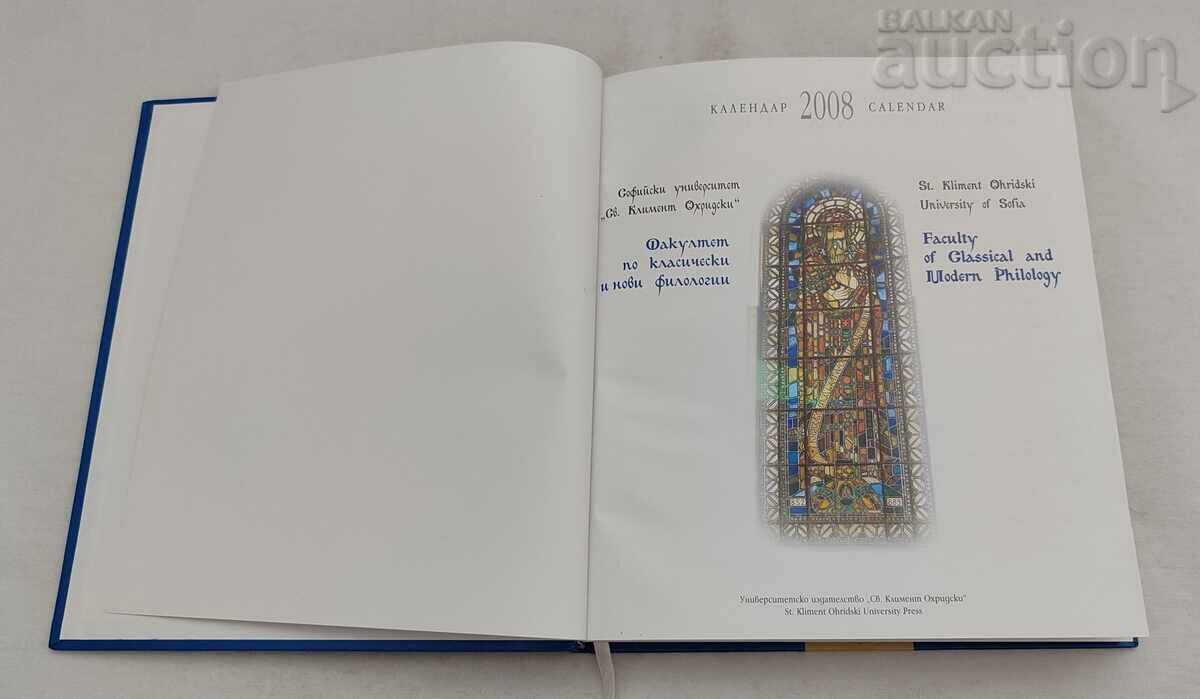 BALKAN
auction
КАЛЕНДАР 2008 CALENDAR
Софийски университет
„Св. Климент Охридски“
Факултет
по класически
и нови филологии
St. Kliment Ohridski
University of Sofia
Faculty
of Classical and
Modern Philology
Университетско издателство „Св. Климент Охридски“
St. Kliment Ohridski University Press